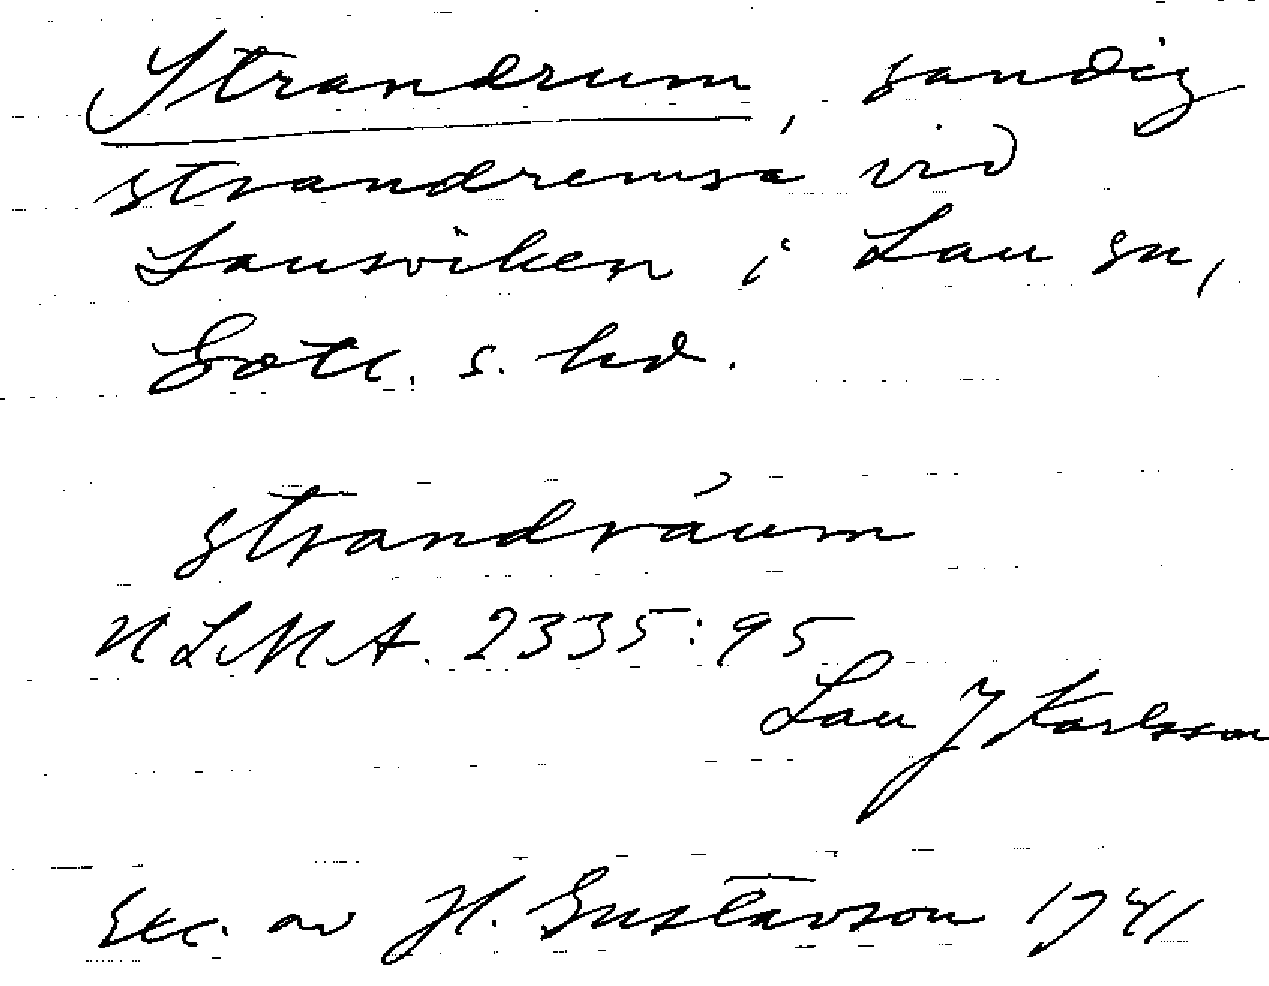 Strandrum, sandig
strandremsa vid
Lausviken i Lau sn,
Gotl. s. hd.
strandráum
ULMA. 2335:95
Lau J Karlsson
Exc. av H. Gustavson 1941